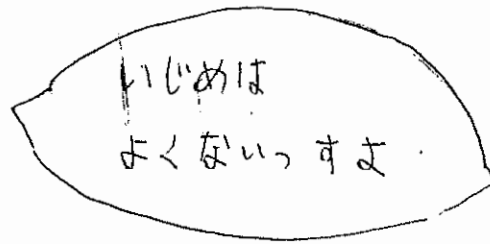 いじめは
よくないっすよ